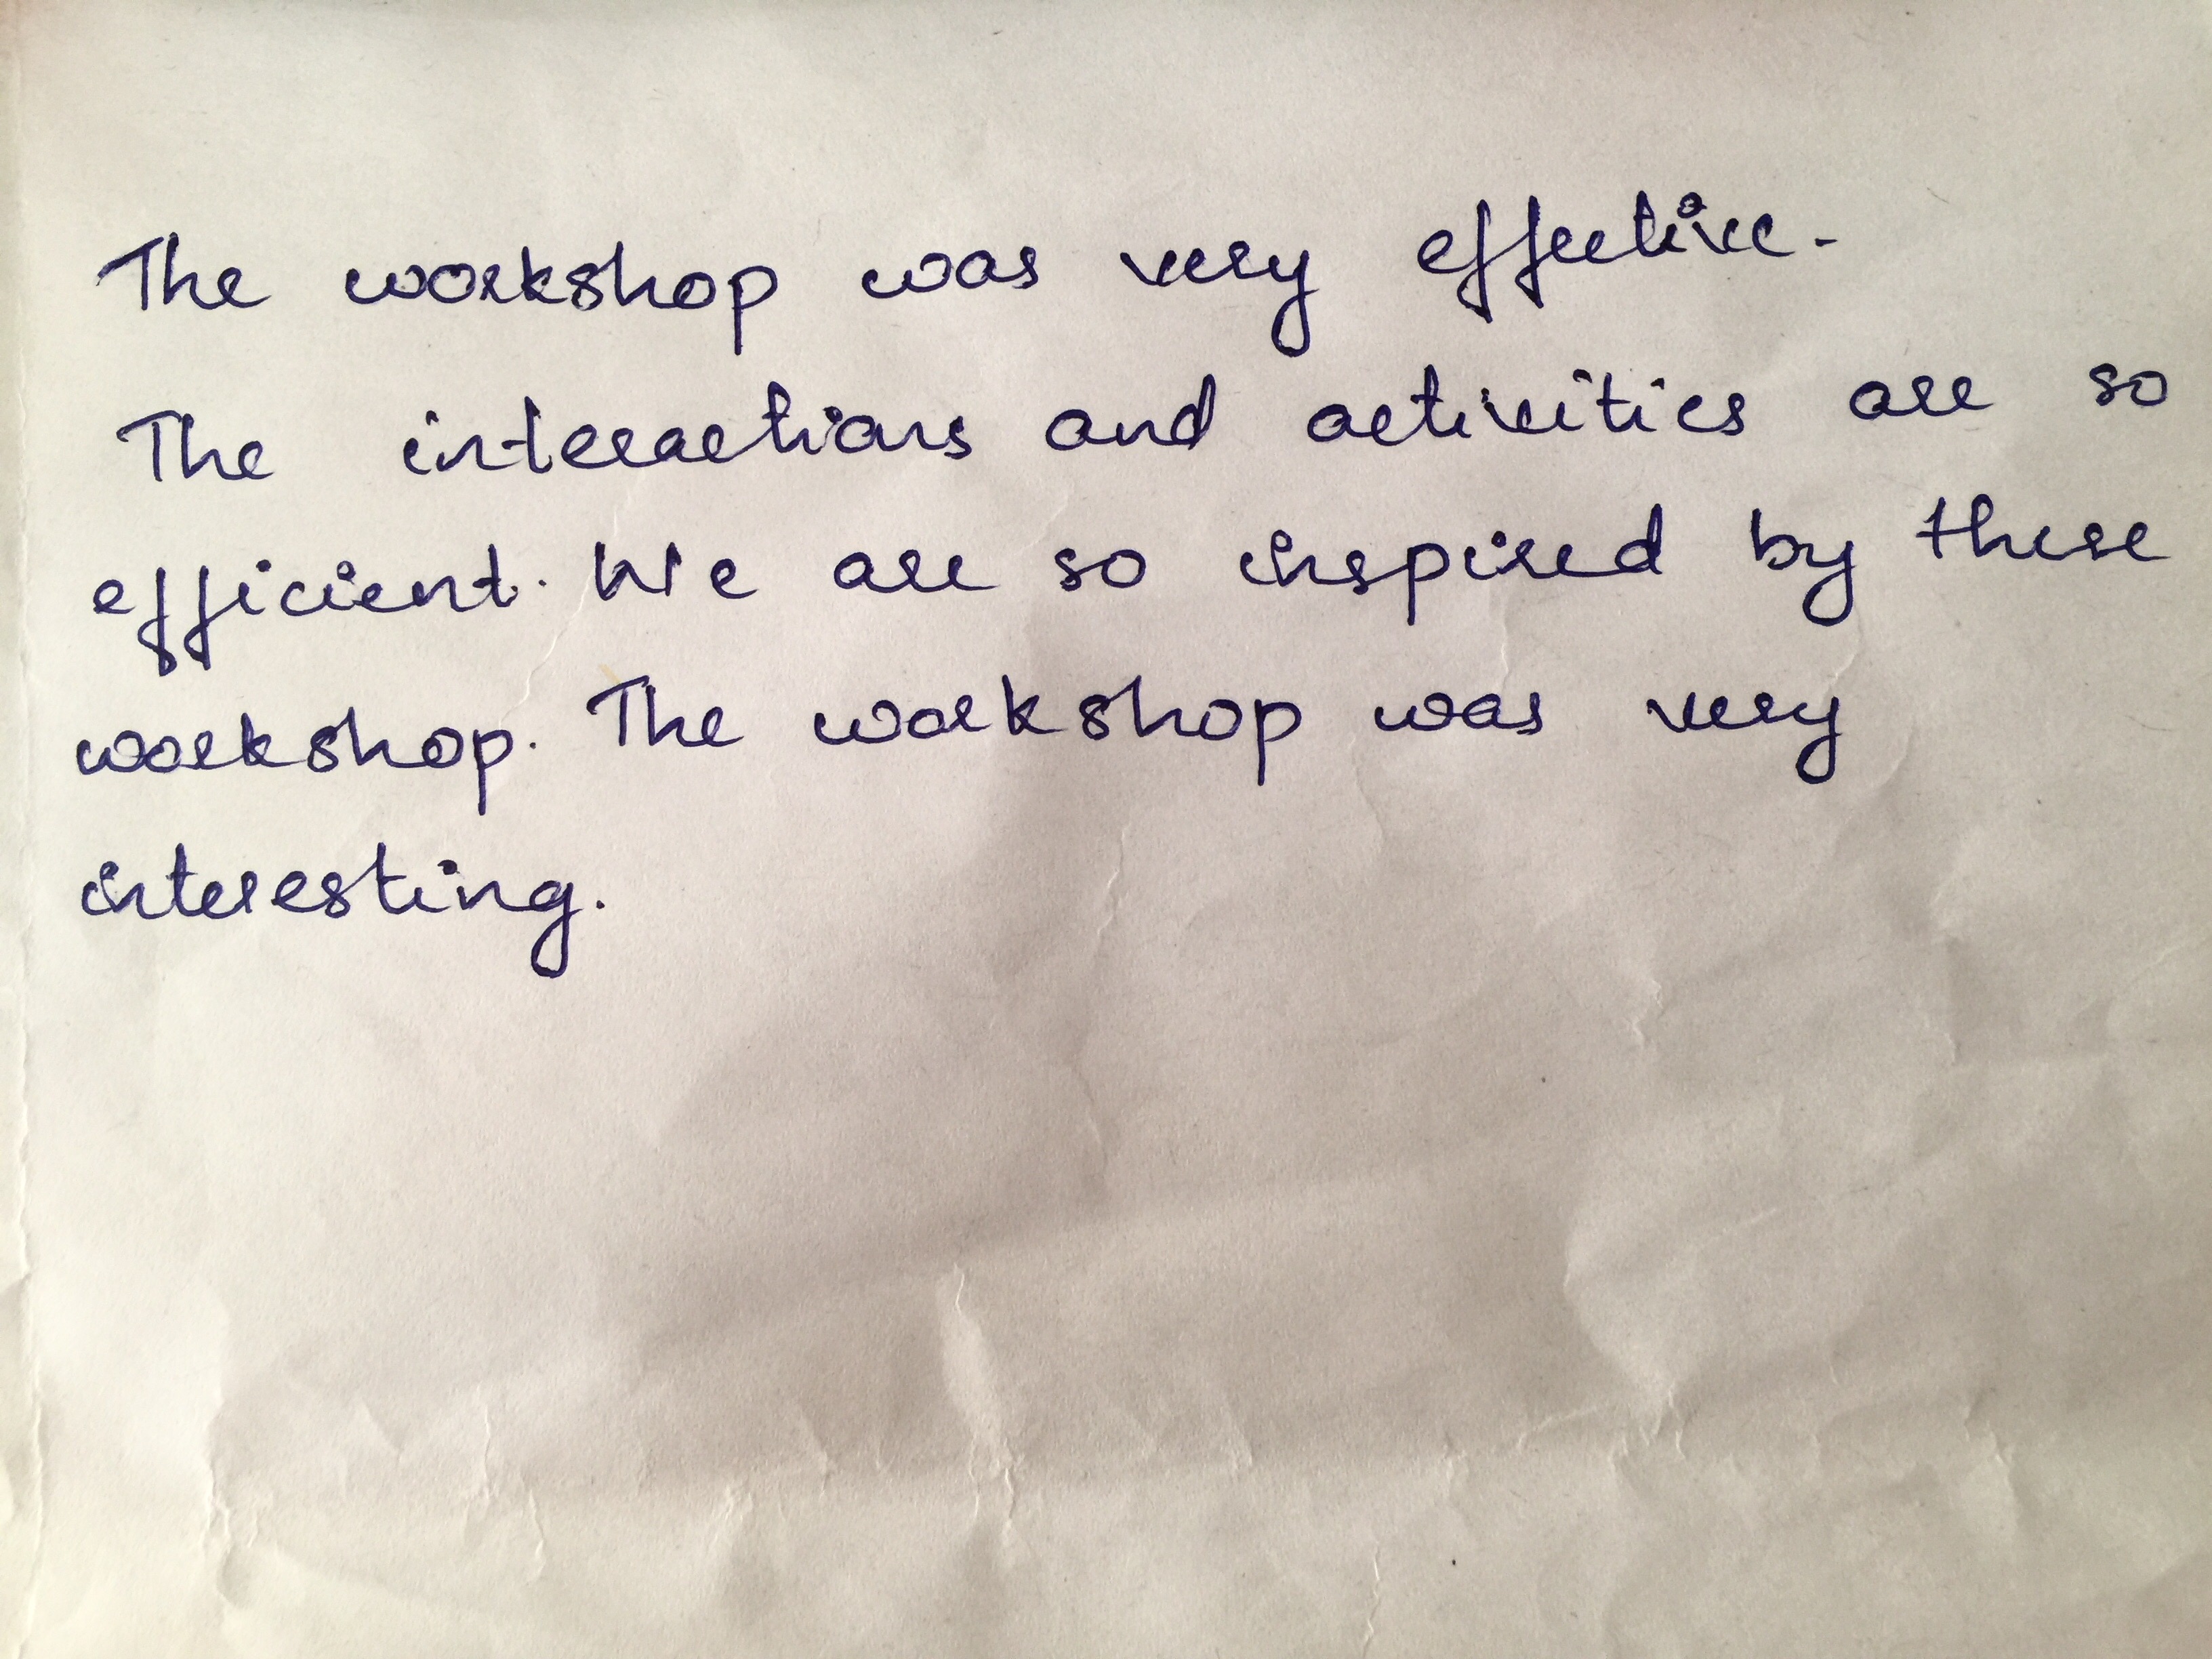 The workshop was very effective.
The interactions and activities are so
efficient. We are so inspired by these
workshop. The workshop was very
interesting.